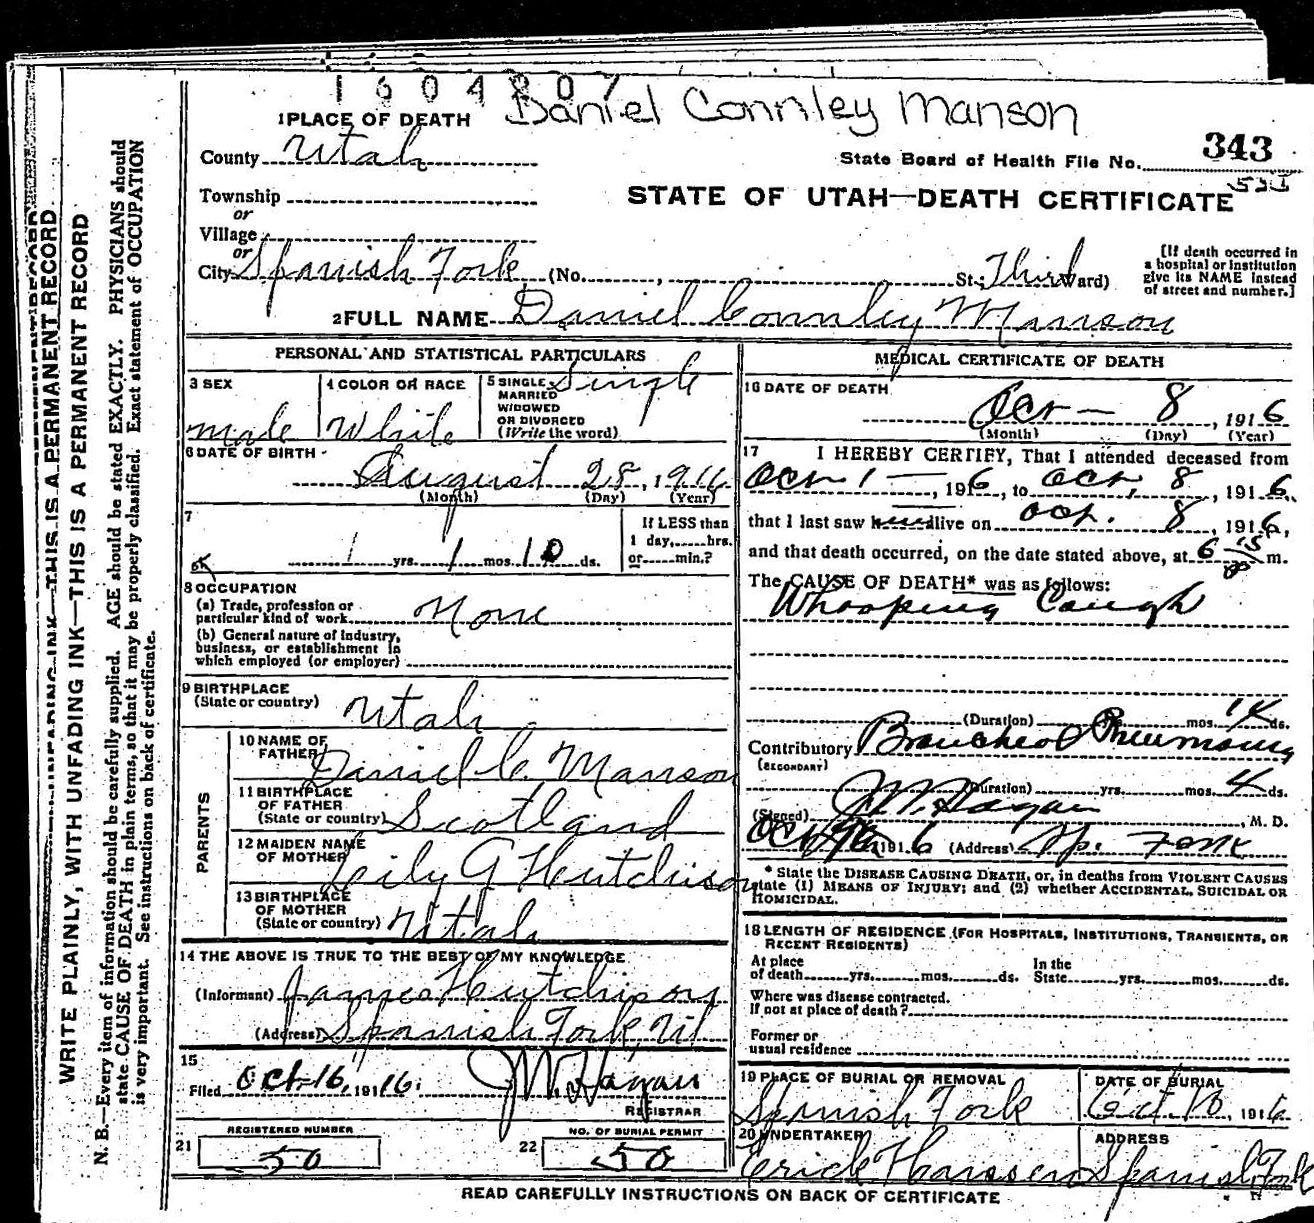 1604207
Daniel Connley Manson
1 PLACE OF DEATH
County Utah
State Board of Health File No. 343
Township
or
STATE OF UTAH—DEATH CERTIFICATE
Village
or
City Spanish Fork (No. , St.; Third Ward)
[If death occurred in
a hospital or institution
give its NAME instead
of street and number.]
2 FULL NAME Daniel Connley Manson
PERSONAL AND STATISTICAL PARTICULARS
3 SEX
male
4 COLOR OR RACE
White
5 SINGLE Single
MARRIED
WIDOWED
OR DIVORCED
(Write the word)
6 DATE OF BIRTH
August 28, 1916
(Month) (Day) (Year)
7
1 yrs. 1 mos. 10 ds.
If LESS than
1 day,......hrs.
or......min.?
8 OCCUPATION
(a) Trade, profession or
particular kind of work None
(b) General nature of industry,
business, or establishment in
which employed (or employer)
9 BIRTHPLACE
(State or country) Utah
PARENTS
10 NAME OF
FATHER Daniel C. Manson
11 BIRTHPLACE
OF FATHER
(State or country) Scotland
12 MAIDEN NAME
OF MOTHER Lily G Hutchison
13 BIRTHPLACE
OF MOTHER
(State or country) Utah
14 THE ABOVE IS TRUE TO THE BEST OF MY KNOWLEDGE
(Informant) James Hutchison
(Address) Spanish Fork, Ut
15
Filed Oct-16, 1916. J W. Hagan
REGISTRAR
21 REGISTERED NUMBER
50
22 NO. OF BURIAL PERMIT
50
MEDICAL CERTIFICATE OF DEATH
16 DATE OF DEATH
Oct — 8, 1916
(Month) (Day) (Year)
17 I HEREBY CERTIFY, That I attended deceased from
Oct 1 —, 1916, to Oct, 8, 1916,
that I last saw alive on Oct. 8, 1916,
and that death occurred, on the date stated above, at 6 15 m.
The CAUSE OF DEATH* was as follows:
Whooping Cough
(Duration) yrs. mos. 14 ds.
Contributory Broncheol Pneumonia
(SECONDARY)
(Duration) yrs. mos. 4 ds.
(Signed) J W. Hagan, M. D.
1916 (Address) Sp. Fork
* State the DISEASE CAUSING DEATH, or, in deaths from VIOLENT CAUSES
state (1) MEANS OF INJURY; and (2) whether ACCIDENTAL, SUICIDAL OR
HOMICIDAL.
18 LENGTH OF RESIDENCE (FOR HOSPITALS, INSTITUTIONS, TRANSIENTS, OR
RECENT RESIDENTS)
At place In the
of death.......yrs.......mos.......ds. State.......yrs.......mos.......ds.
Where was disease contracted.
If not at place of death?
Former or
usual residence
19 PLACE OF BURIAL OR REMOVAL
Spanish Fork
DATE OF BURIAL
Oct 10, 1916
20 UNDERTAKER
Erick Hanssen
ADDRESS
Spanish Fork
READ CAREFULLY INSTRUCTIONS ON BACK OF CERTIFICATE
WRITE PLAINLY, WITH UNFADING INK—THIS IS A PERMANENT RECORD
N. B.—Every item of information should be carefully supplied. AGE should be stated EXACTLY. PHYSICIANS should
state CAUSE OF DEATH in plain terms, so that it may be properly classified. Exact statement of OCCUPATION
is very important. See instructions on back of certificate.